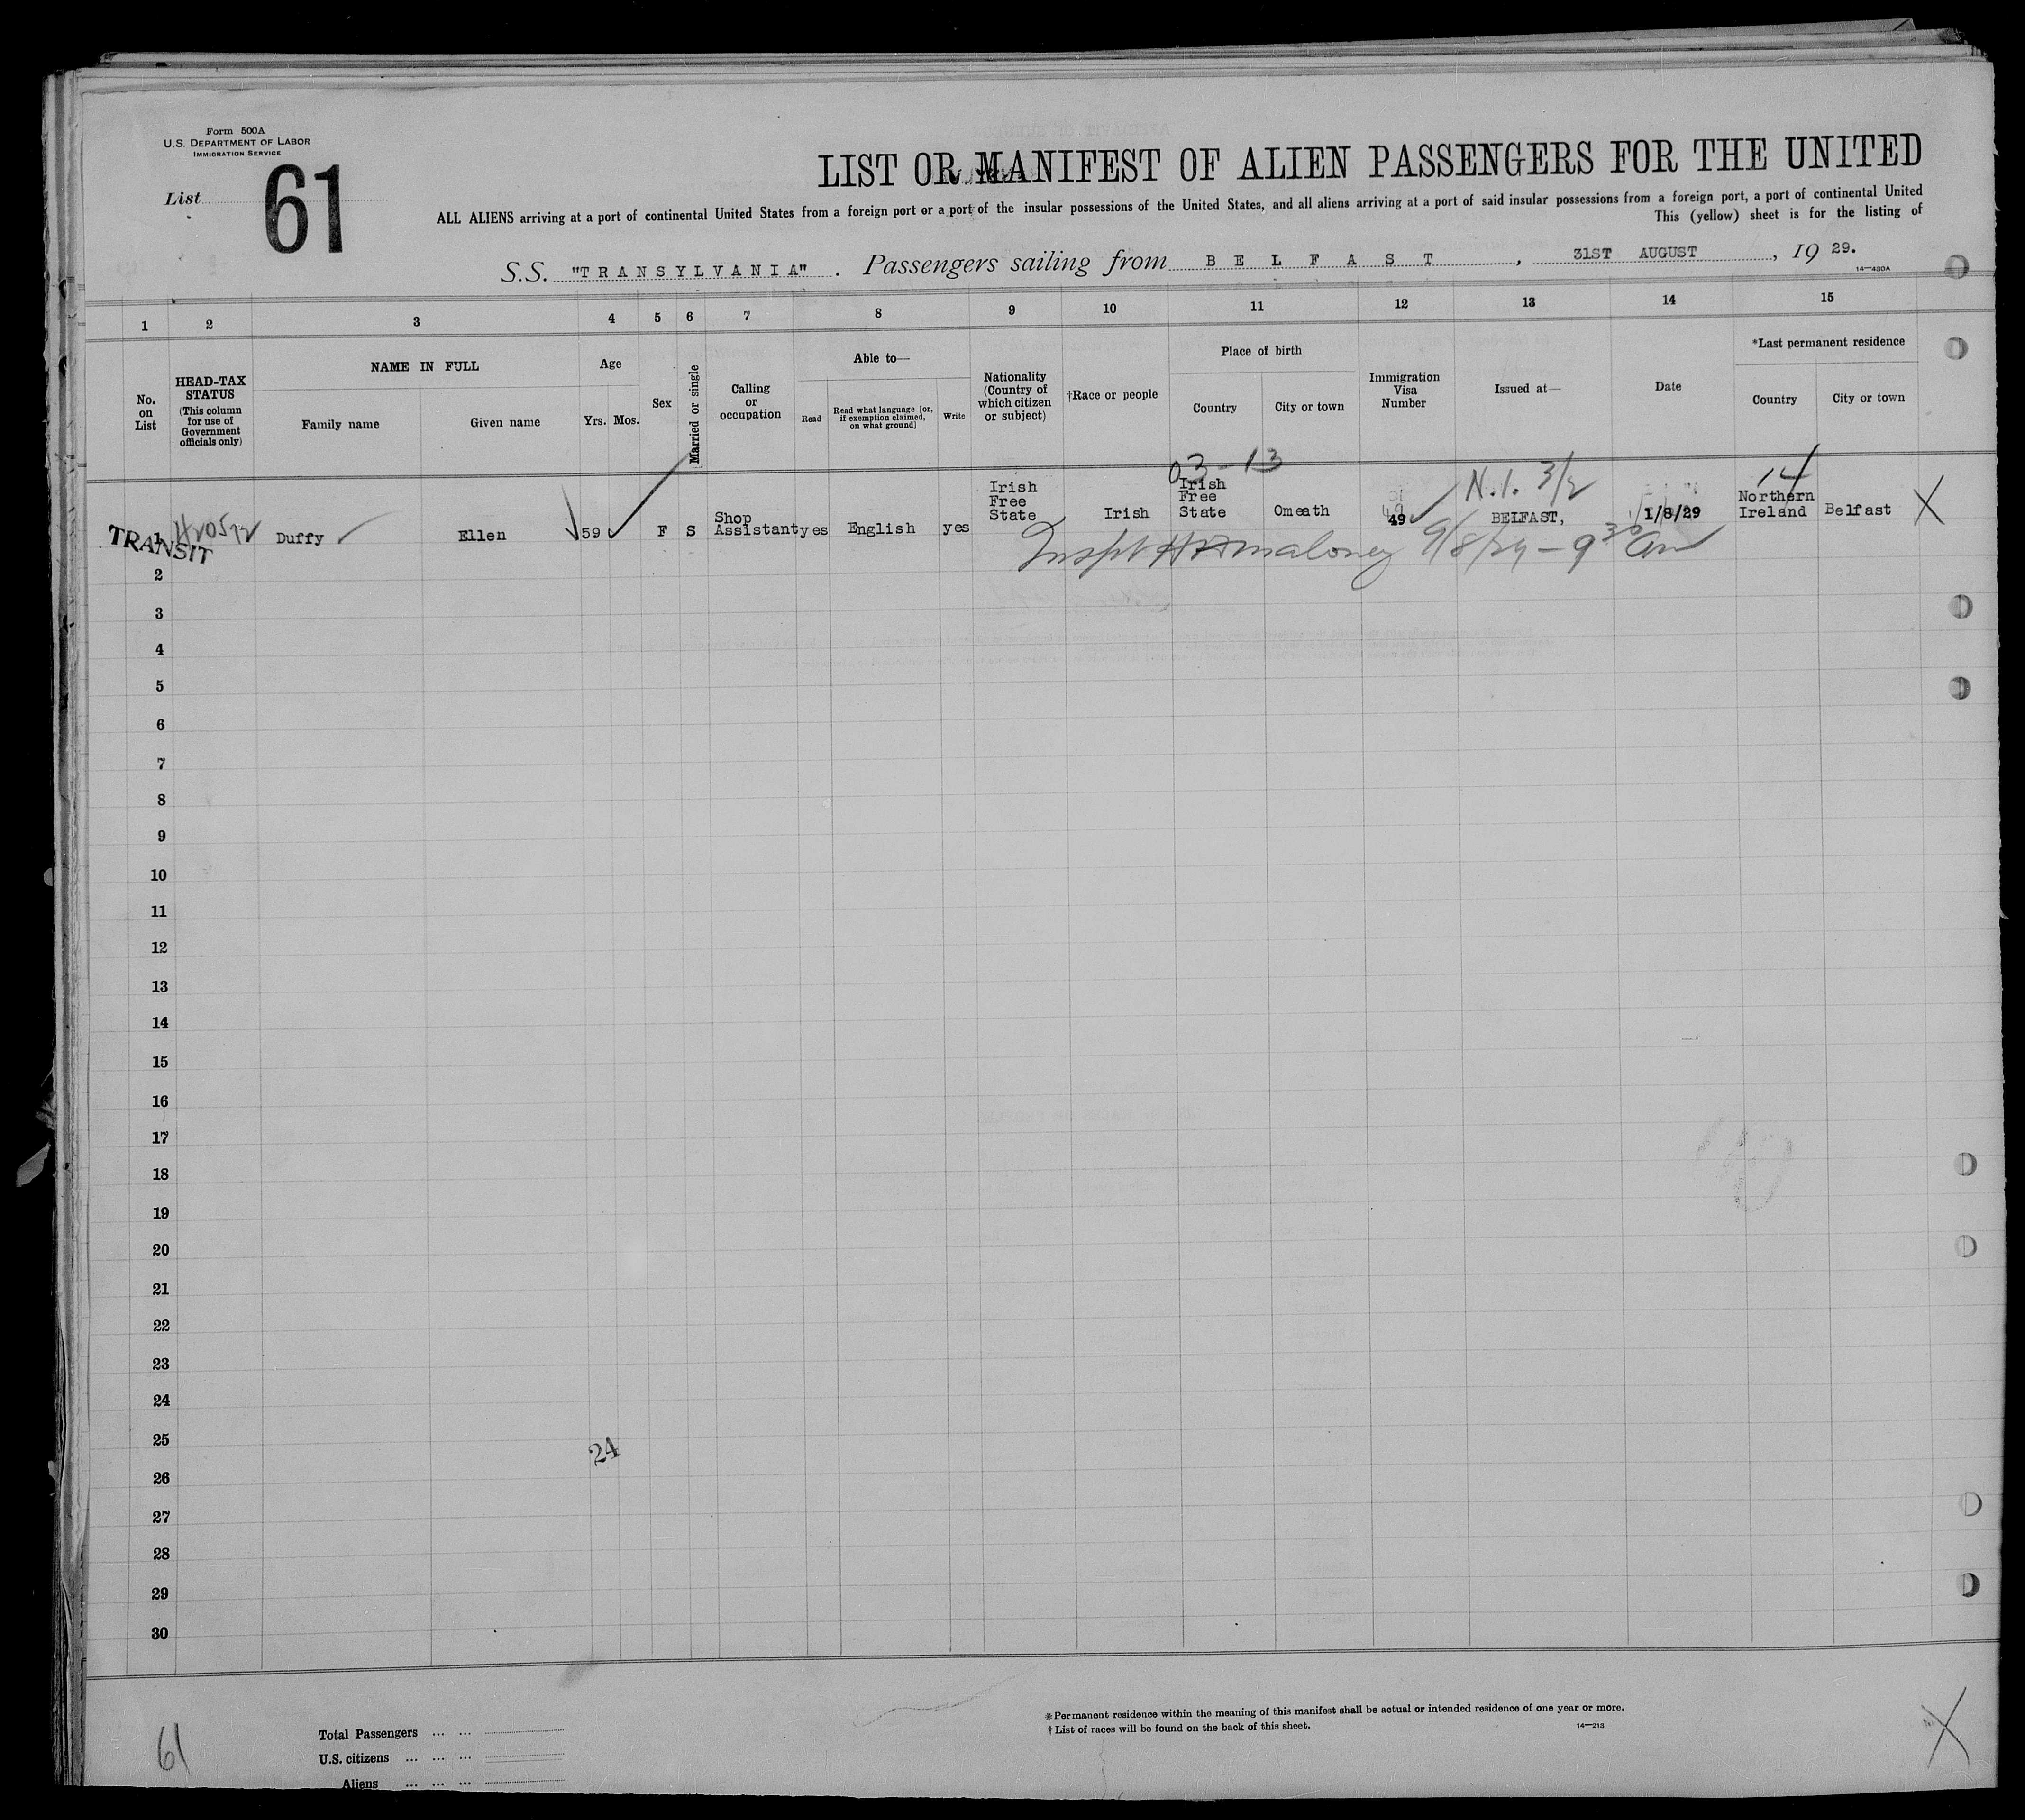 Form 500A
U.S. DEPARTMENT OF LABOR
IMMIGRATION SERVICE
List 61
LIST OR MANIFEST OF ALIEN PASSENGERS FOR THE UNITED
ALL ALIENS arriving at a port of continental United States from a foreign port or a port of the insular possessions of the United States, and all aliens arriving at a port of said insular possessions from a foreign port, a port of continental United
This (yellow) sheet is for the listing of
S.S. "TRANSYLVANIA". Passengers sailing from BELFAST, 31ST AUGUST, 19 29.
14—480A
1 2 3 4 5 6 7 8 9 10 11 12 13 14 15
No. on List
HEAD-TAX STATUS
(This column for use of Government officials only)
NAME IN FULL
Family name
Given name
Age
Yrs. Mos.
Sex
Married or single
Calling or occupation
Able to—
Read
Read what language [or, if exemption claimed, on what ground]
Write
Nationality (Country of which citizen or subject)
†Race or people
Place of birth
Country
City or town
Immigration Visa Number
Issued at—
Date
*Last permanent residence
Country
City or town
03-13
N.I. 3/2
14
TRANSIT
1 Duffy Ellen 59 F S Shop Assistant yes English yes Irish Free State Irish Irish Free State Omeath 49 BELFAST, 1/8/29 Northern Ireland Belfast X
Maloney 9/8/29 - 9 30 am
2
3
4
5
6
7
8
9
10
11
12
13
14
15
16
17
18
19
20
21
22
23
24
25
24
26
27
28
29
30
*Permanent residence within the meaning of this manifest shall be actual or intended residence of one year or more.
†List of races will be found on the back of this sheet.
14—213
61
Total Passengers ... ...
U.S. citizens ... ... ...
Aliens ... ... ...
X